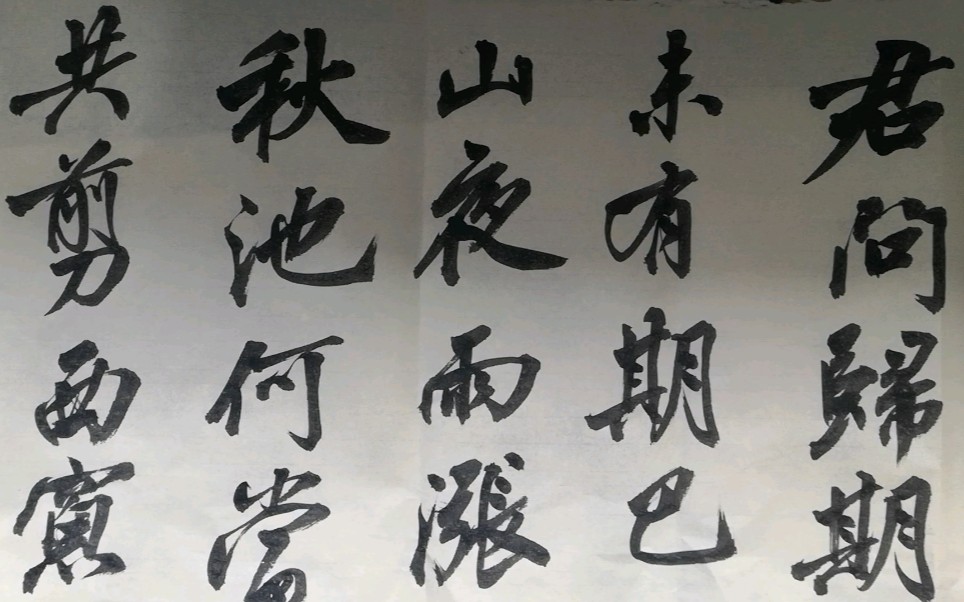 君問歸期
未有期巴
山夜雨漲
秋池何當
共剪西窗